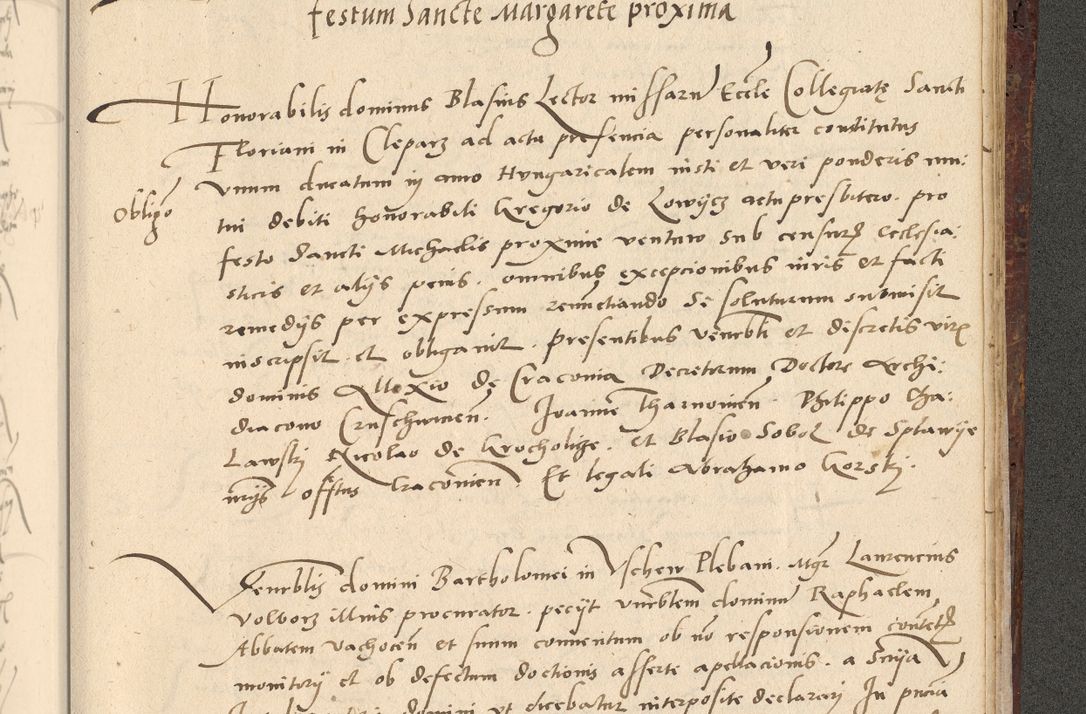 festum Sancte Margarete proxima
Honorabilis dominus Blasius Lector missaru Eccle Collegiatę Sancti
Floriani in Cleparz ad acta presencia personaliter constitutus
Vnum ducatum in auro Hungaricalem iusti et veri ponderis mu:
Obligo
tui debiti honorabili Gregorio de Lowijcz actu presbitero . pro
festo Sancti Michaelis proxime venturo sub censuris Ecclesia:
sticis et alijs penis . omnibus excepcionibus iuris et facti
remedijs per expressum renunctiando se soluturum submisit
inscripsit . et obligauit . presentibus venerbli et discretis viris
dominis Allexio de Craconia Decretorum Doctore Archi:
diacono Cruschwicien . Joanne Tharnouien . Philippo Cha:
Lawskj Nicolao de Crocholicze . et Blasio Sobol de Splawije
officialatus Cracouien Et legali Abrahamo Gorskj .
Venerblis domini Bartholomei in Vschew Plebani . Mgr Laurencius
Volborz illius procurator . pecijt venerblem dominu Raphaelem
Abbatem Vachocen et suum conuentum ob no responsionem
monitorij et ob defectum doctionis asserte apellacionis . a
domini vt dicebatur interposite declarari In